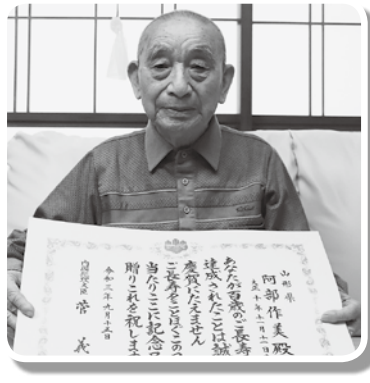 山形県
阿部作美殿
大正十年
あなたが百歳のご長寿
達成されたことは誠
慶賀にたえません
ご長寿をことほぐこの
当たりここに記念
贈りこれを祝しま
令和三年九月十五日
内閣総理大臣 菅 義